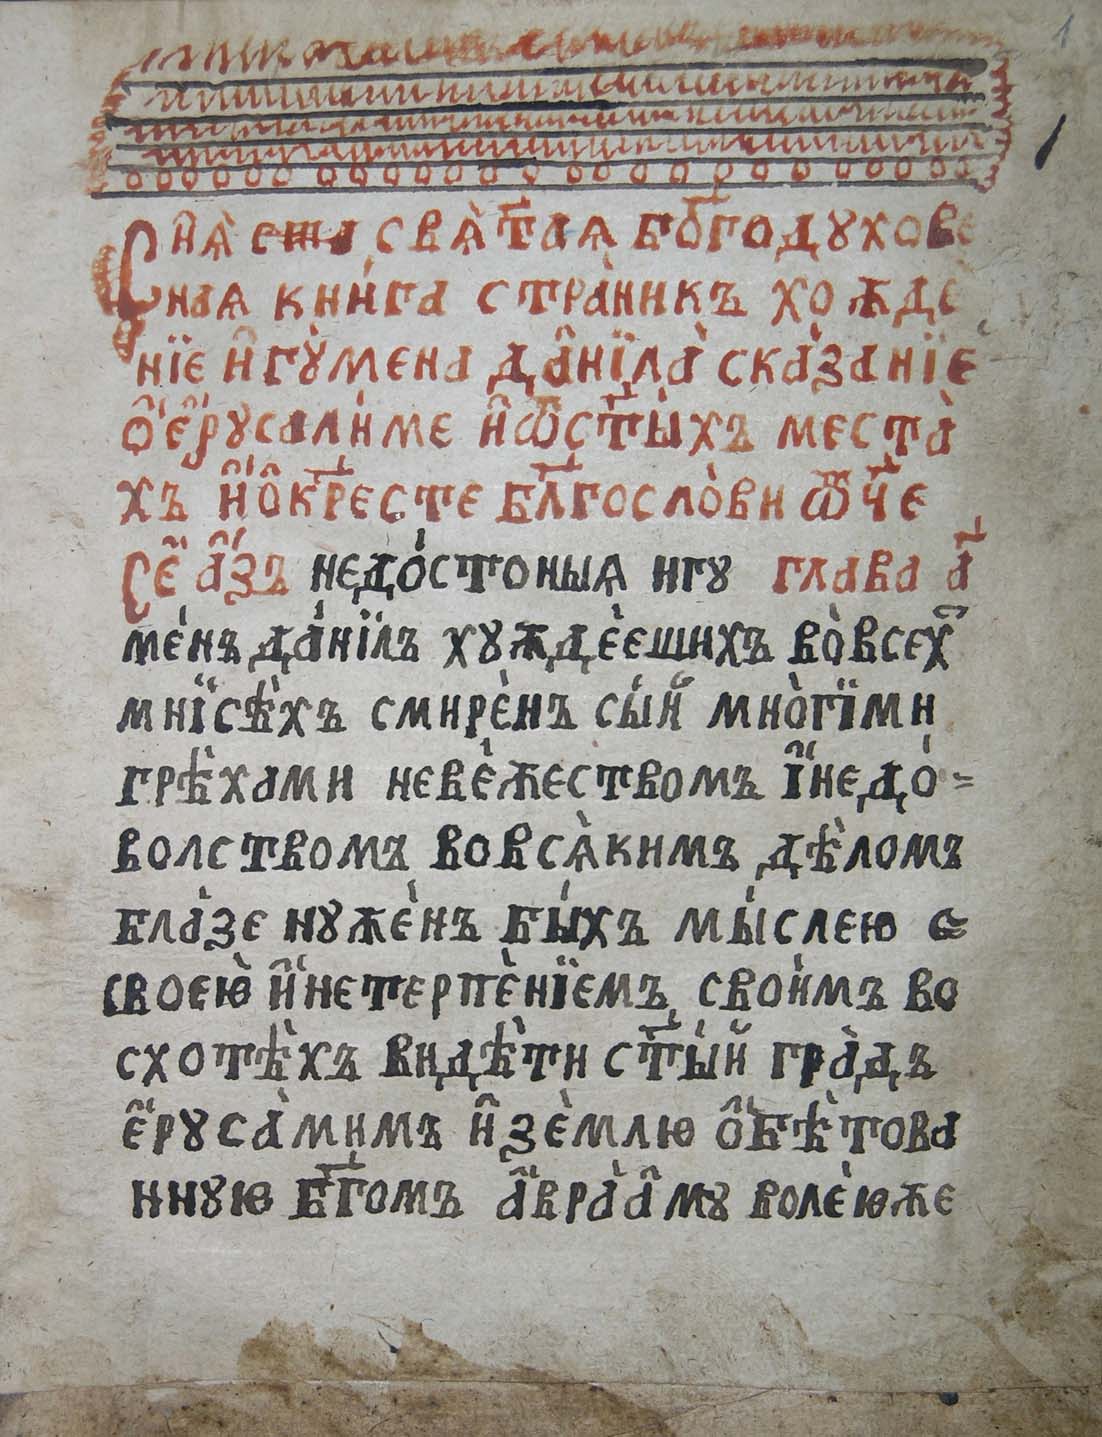 1
Сиѧ̀ ста свѧ̀таѧ бг҃одухове
наѧ кни́га стра̀никъ хожде
нїе и҆гу́мена да҆нїла̀ сказанїе
ѻ҆ е҆русали́ме и҆ ѿ ст҃ы́хъ места̀
хъ и҆ ѻ҆ кр҃есте бл҃гослѻ̀ви ѿч҃е
Се́ а҆́зъ недо́стоиыѧ игу глава а҃
ме́нъ да́нїлъ хуждѐешихъ во̀ всех
мнїсѣ́хъ смирѐнъ сы́й мно̀гїми
грѣ́хами невѐжествомъ ї҆ недо́=
волствомъ во всѧ̀кимъ дѣ́ломъ
бла́зе нужѐнъ бы́хъ мы́слею с
своею̀ и҆ нетерпѐнїемъ свои́мъ во
схотѣ́хъ видѣ́ти ст҃ы́й гра̀дъ
е҆русали́мъ и҆ зѐмлю ѻ҆бѣ́това
нную бг҃омъ а҆вра̀а҆му волѐюже